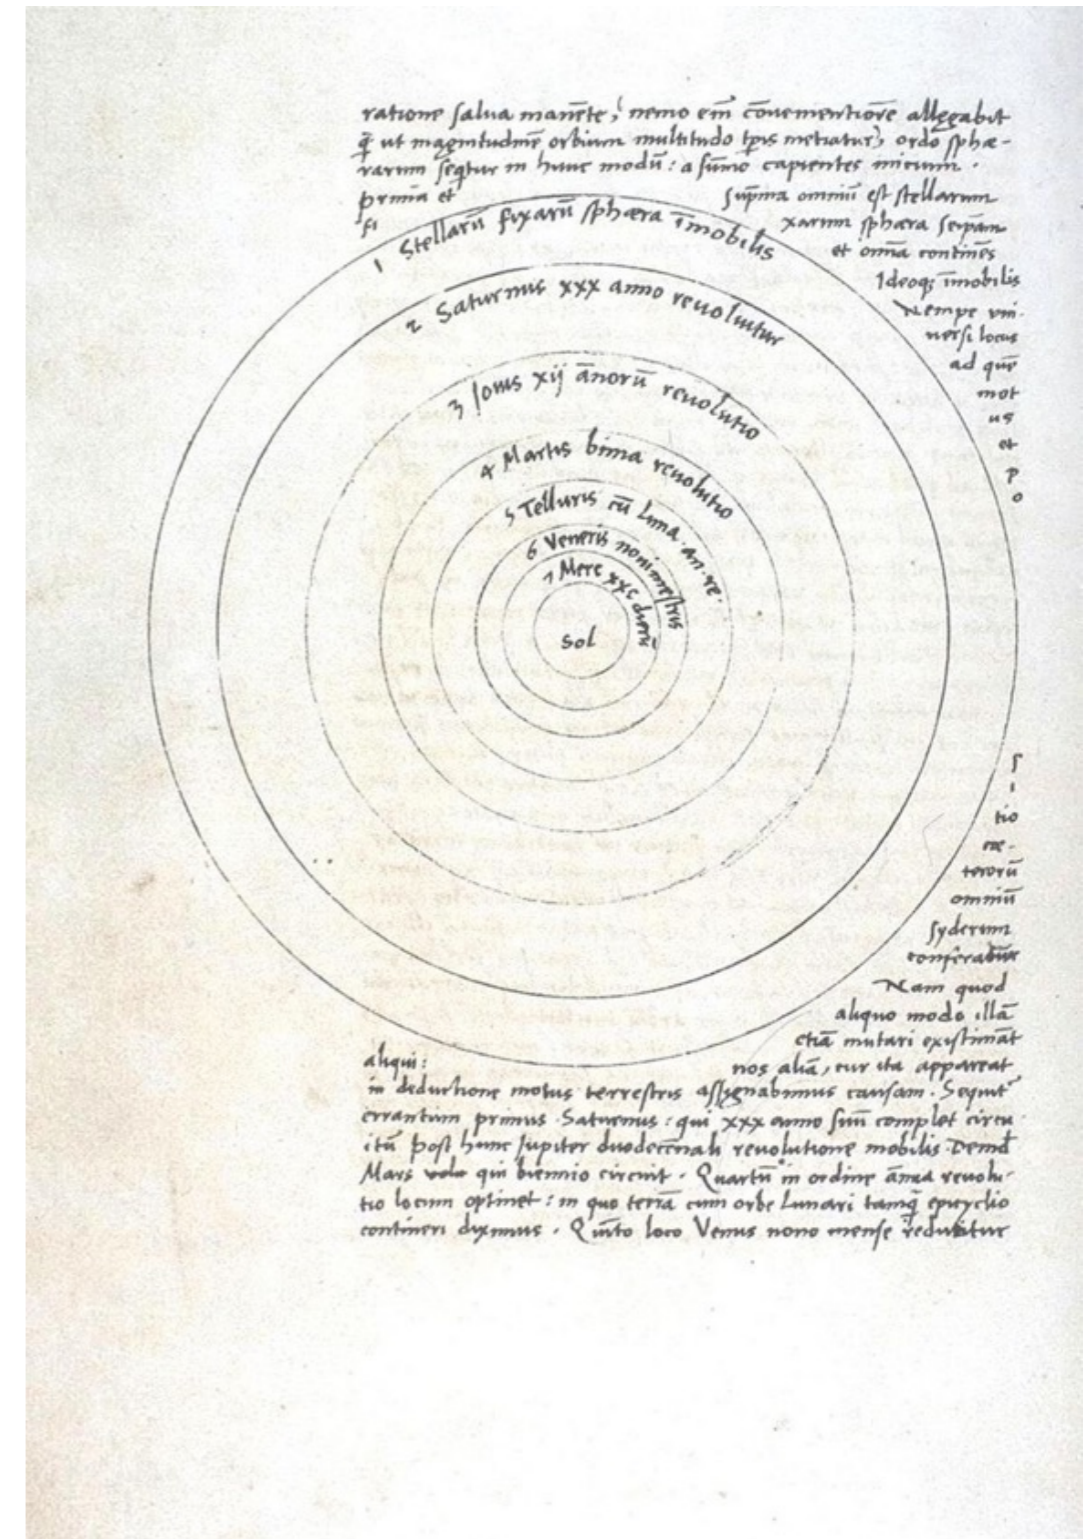 ratione salva manēte, nemo em̄ cōvenientiorē allegabit
q̄ ut magnitudinē orbium multitudo tp̄is metiatur, ordo sphæ-
rarum seq̄tur in hunc modū: a sūmo capientes inicium.
prima et sup̄ma omniū est stellarum
fi xarum sphæra seip̄am
et om̄ia continēs
Ideoq; īmobilis
Nempe vni-
versi locus
ad quē
mot
us
et
p
o
1 Stellarū fixarū sphæra īmobilis
2 Saturnus xxx anno revoluitur
3 Jovis xij ānorū revolutio
4 Martis bima revolutio
5 Telluris cū Luna an. re.
6 Veneris nonimestris
7 Merc xxc dierū
Sol
s
i
tio
cæ-
terorū
omniū
syderum
conferatur
Nam quod
aliquo modo illā
etiā mutari existimāt
aliqui: nos aliā, cur ita appareat
in deductione motus terrestris assignabimus causam. Sequit̄
errantium primus Saturnus: qui xxx anno suū complet circu
itū post hunc Jupiter duodecēnali revolutione mobilis Deind̄
Mars qui biennio circuit. Quartū in ordine ānua revolu-
tio locum optinet: in quo terrā cum orbe Lunari tamq̄ epicyclio
contineri diximus. Quīto loco Venus nono mense reducitur